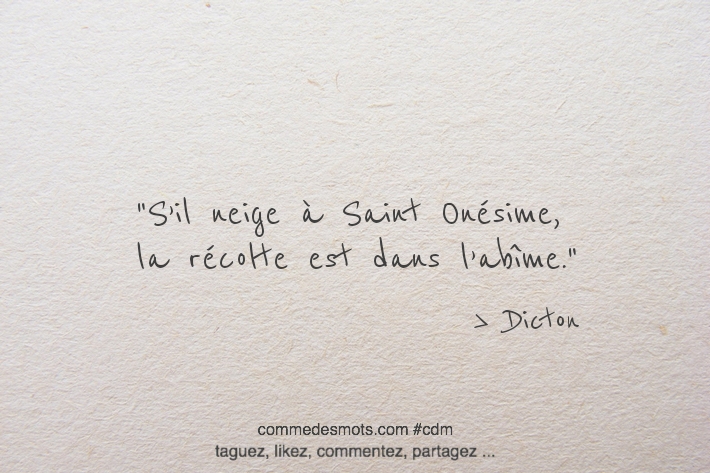 "S'il neige à Saint Onésime,
la récolte est dans l'abîme."
> Dicton
commedesmots.com #cdm
taguez, likez, commentez, partagez ...